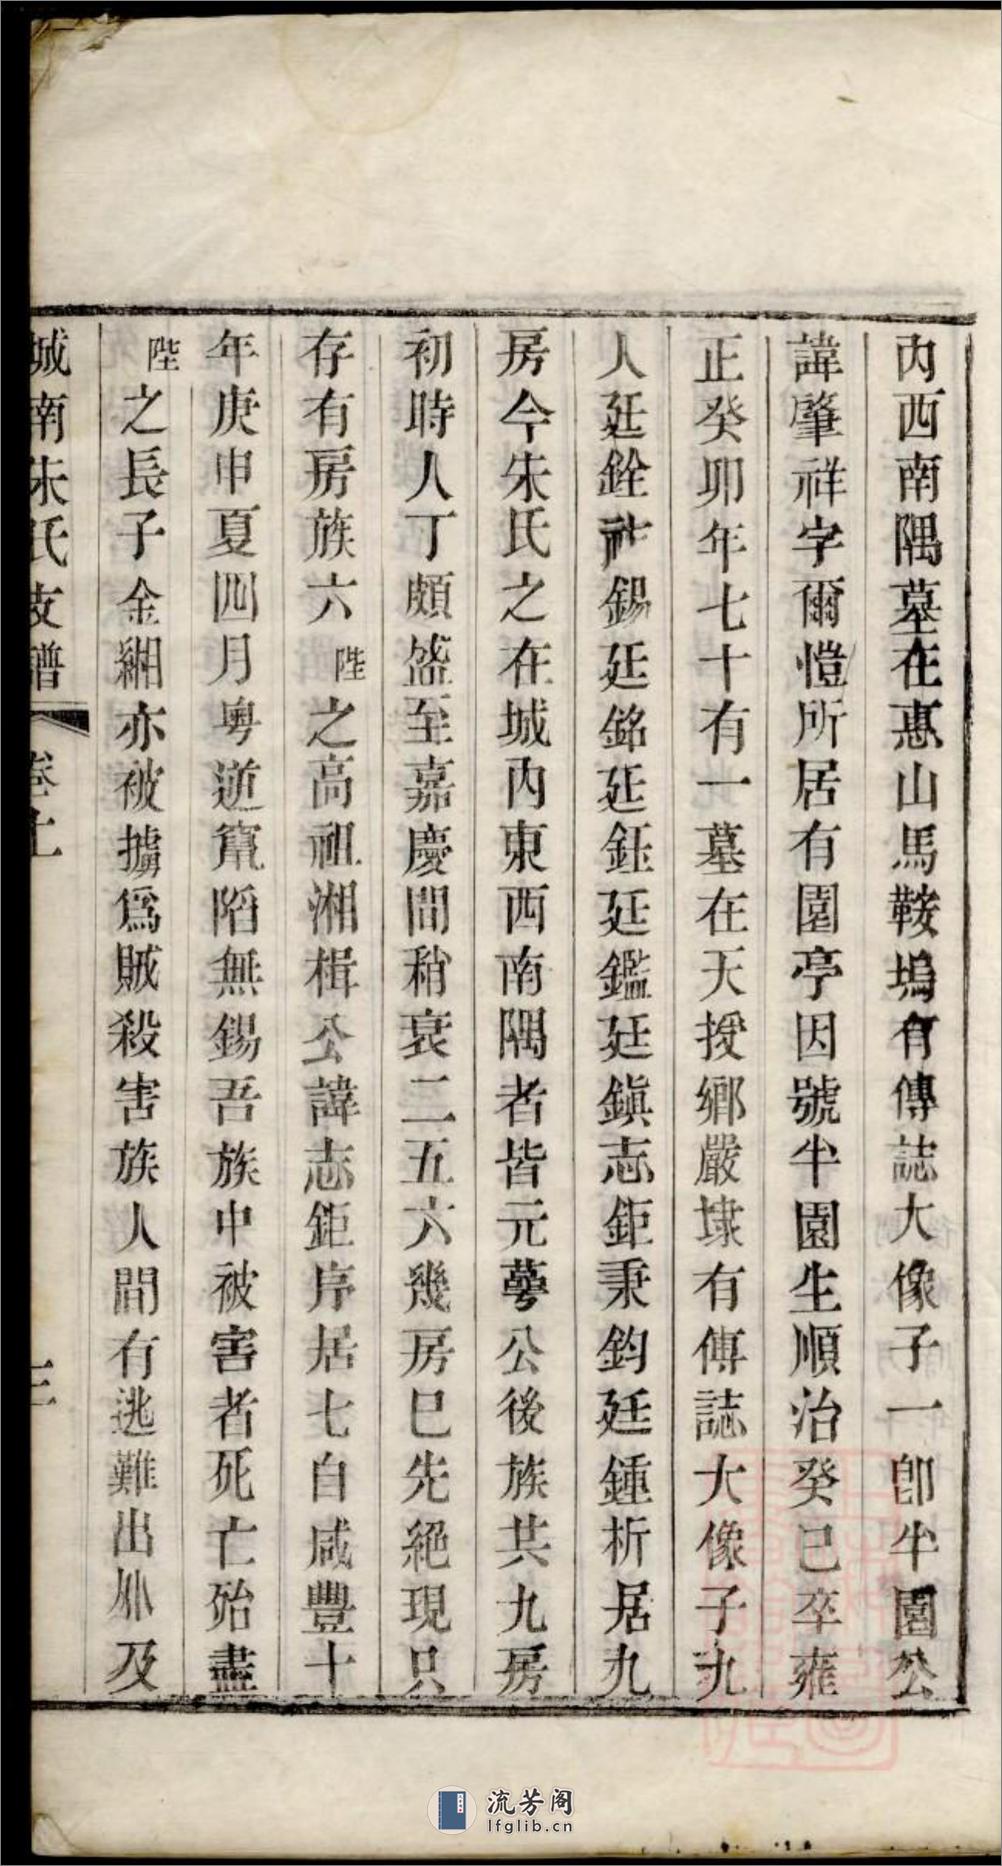 內西南隅墓在惠山馬鞍塢有傳誌大像子一卽半園公
諱肇祥字爾愷所居有園亭因號半園生順治癸巳卒雍
正癸卯年七十有一墓在天授鄉嚴埭有傳誌大像子九
人廷銓祚錫廷銘廷鈺廷鑑廷鎭志鉅秉鈞廷鍾析居九
房今朱氏之在城內東西南隅者皆元蕚公後族共九房
初時人丁頗盛至嘉慶間稍衰二五六幾房巳先絕現只
存有房族六陛之高祖湘楫公諱志鉅序居七自咸豐十
年庚申夏四月粵逆竄陷無錫吾族中被害者死亡殆盡
陛之長子金緗亦被擄爲賊殺害族人間有逃難出外及
城南朱氏支譜 卷上 三
流芳阁
lfglib.cn